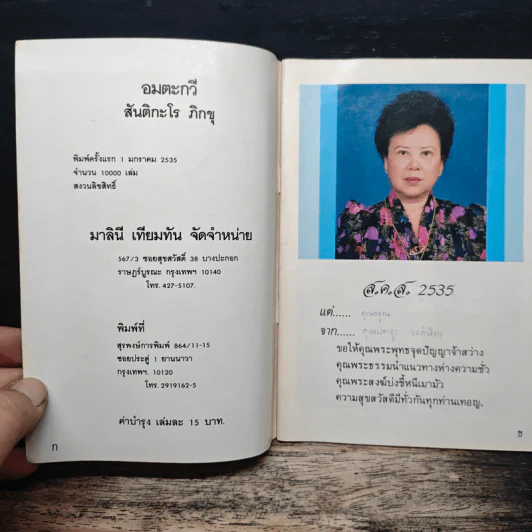 อมตะกวี
สันติกะโร ภิกขุ
พิมพ์ครั้งแรก 1 มกราคม 2535
จำนวน 10000 เล่ม
สงวนลิขสิทธิ์
มาลินี เทียมทัน จัดจำหน่าย
567/3 ซอยสุขสวัสดิ์ 38 บางปะกอก
ราษฎร์บูรณะ กรุงเทพฯ 10140
โทร. 427-5107.
พิมพ์ที่
สุรพงษ์การพิมพ์ 864/11-15
ซอยประดู่ 1 ยานนาวา
กรุงเทพฯ 10120
โทร. 2919162-5
ค่าบำรุง เล่มละ 15 บาท.
ก
ส.ค.ส. 2535
แด่......
จาก......
ขอให้คุณพระพุทธจุดปัญญาจ้าสว่าง
คุณพระธรรมนำแนวทางห่างความชั่ว
คุณพระสงฆ์บ่งชี้หนีเมามัว
ความสุขสวัสดีมีทั่วกันทุกท่านเทอญ.